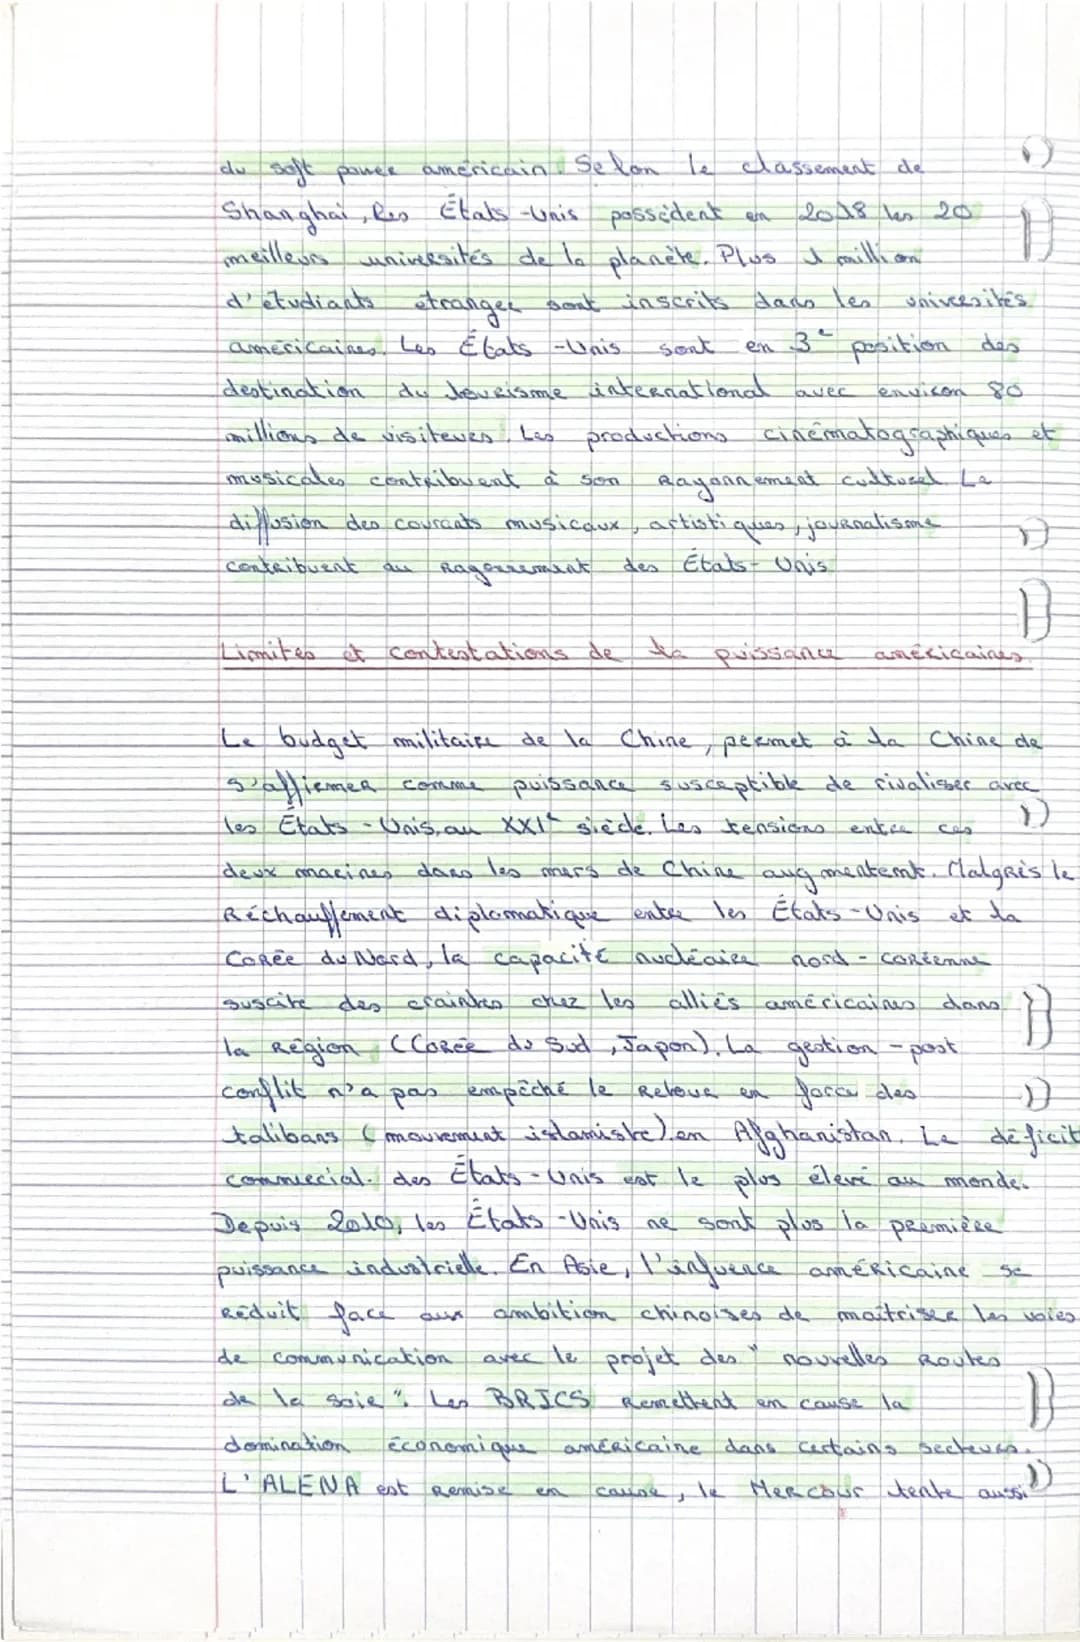 du soft power américain. Selon le classement de
Shanghai, les États-Unis possèdent en 2018 les 20
meilleurs universités de la planète. Plus 1 million
d'étudiants étranger sont inscrits dans les universités
américaines. Les États-Unis sont en 3e position des
destination du tourisme international avec environ 80
millions de visiteurs. Les productions cinématographiques et
musicales contribuent à son rayonnement culturel. La
diffusion des courants musicaux, artistiques, journalisme
contribuent au rayonnement des États-Unis
Limites et contestations de la puissance américaines.
Le budget militaire de la Chine, permet à la Chine de
s'affirmer comme puissance susceptible de rivaliser avec
les États-Unis, au XXIe siècle. Les tensions entre ces
deux marines dans les mers de Chine augmentent. Malgrès le
Réchauffement diplomatique entre les États-Unis et la
Corée du Nord, la capacité nucléaire nord-coréenne
suscite des craintes chez les alliés américaines dans
la Région (Corée du Sud, Japon). La gestion-post
conflit n'a pas empêché le Retour en force des
talibans (mouvement islamiste) en Afghanistan. Le déficit
commercial. des États-Unis est le plus élevé au monde.
Depuis 2010, les États-Unis ne sont plus la première
puissance industrielle. En Asie, l'infuence américaine se
Réduit face aux ambition chinoises de maîtriser les voies
de communication avec le projet des "nouvelles Routes
de la soie". Les BRICS Remettent en cause la
domination économique américaine dans certains secteurs.
L'ALENA est Remise en cause, le Mercosur tente aussi